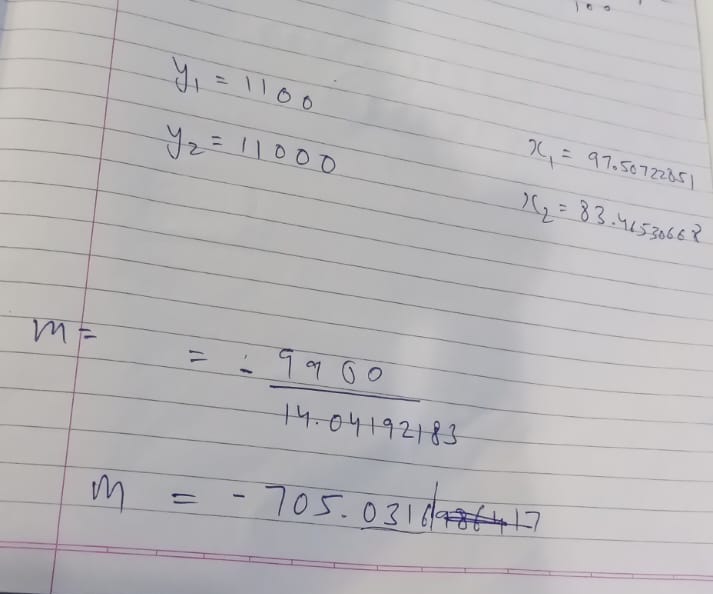 100
y₁ = 1100
y₂ = 11000
x₁ = 97.50722851
x₂ = 83.46530668
m =
= - 9900
14.04192183
m = - 705.0316